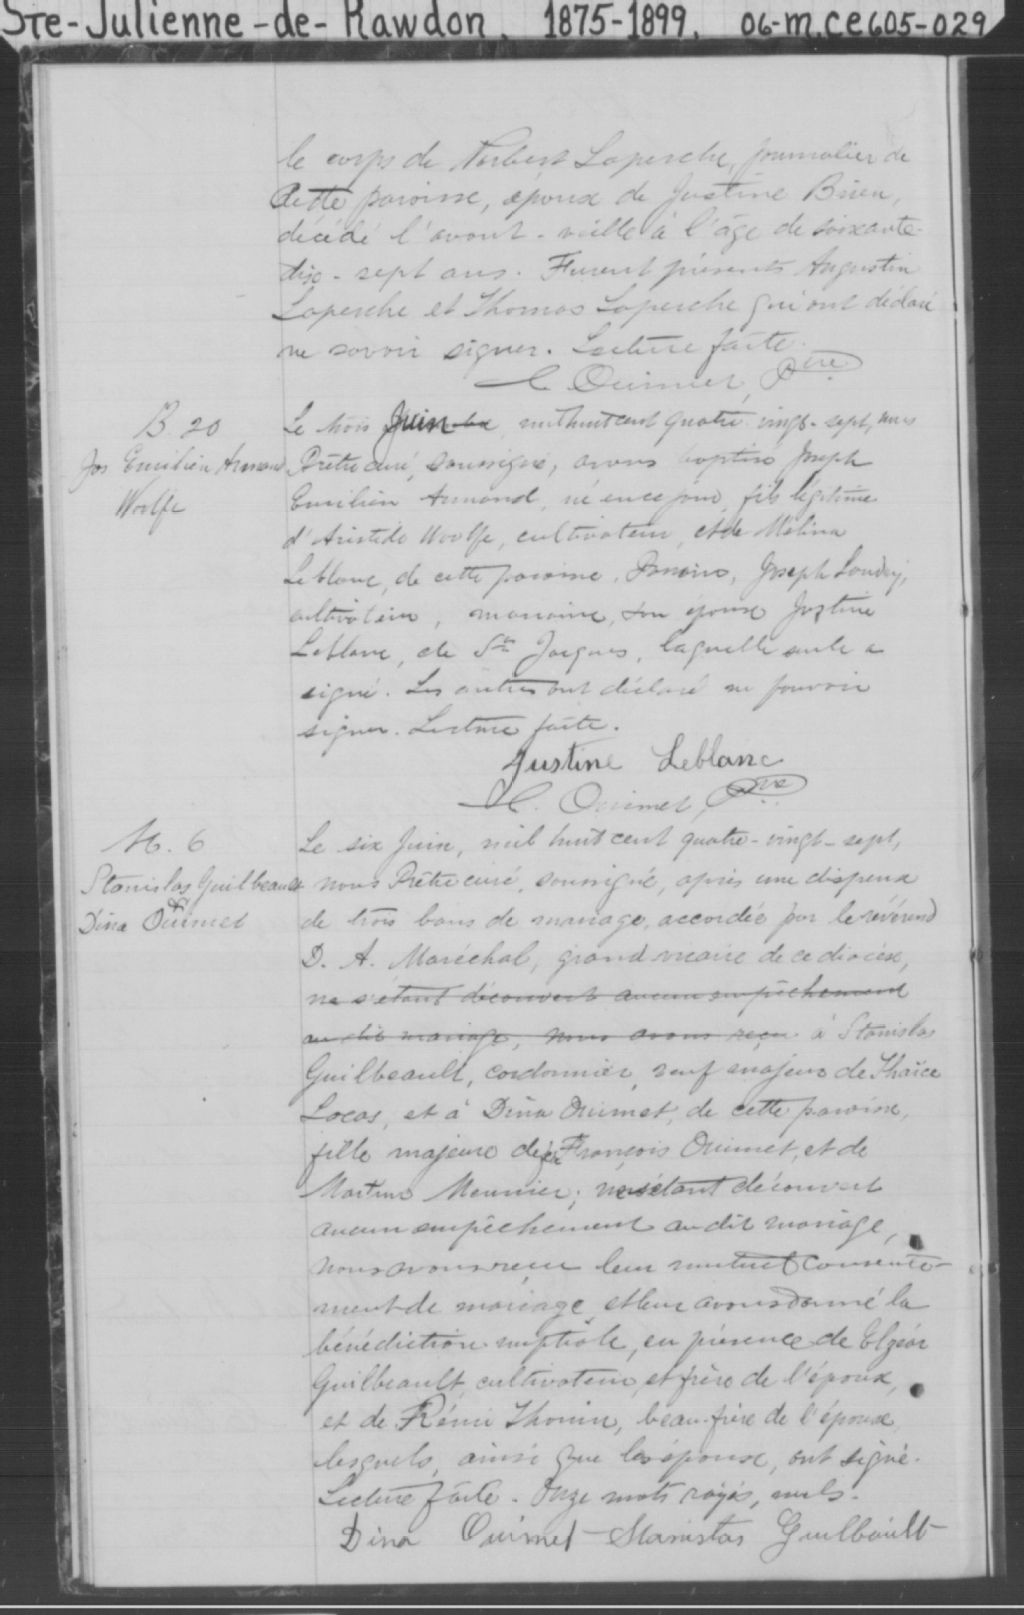 Ste-Julienne-de-Rawdon. 1875-1899. 06-M.CE605-029
le corps de Norbert Laperche, journalier de
Cette paroisse, époux de Justine Brien,
décédé l'avant-veille à l'âge de soixante-
dix-sept ans. Furent présents Augustin
Laperche et Thomas Laperche qui ont déclaré
ne savoir signer. Lecture faite.
Ouimet, Ptre
B. 20
Jos Emilien Armand
Woolfe
Le trois Juin mil huit cent quatre-vingt-sept, nous
Prêtre curé, soussigné, avons baptisé Joseph
Emilien Armand, né en ce jour, fils légitime
d'Aristide Woolfe, cultivateur, et de Melina
Leblanc, de cette paroisse. Parrain, Joseph Landry,
cultivateur, marraine, son épouse Justine
Leblanc, de St Jacques, laquelle seule a
signé. Les autres ont déclaré ne pouvoir
signer. Lecture faite.
Justine Leblanc
Ouimet, Ptre
M. 6
Stanislas Guilbeault
&
Dina Ouimet
Le six Juin, mil huit cent quatre-vingt-sept,
nous Prêtre curé, soussigné, après une dispense
de trois bans de mariage, accordée par le révérend
D. A. Maréchal, grand vicaire de ce diocèse,
ne s'étant découvert aucun empêchement
au dit mariage, nous avons reçu à Stanislas
Guilbeault, cordonnier, veuf majeur de Thaïce
Locas, et à Dina Ouimet, de cette paroisse,
fille majeure de feu François Ouimet, et de
Martine Meunier; ne s'étant découvert
aucun empêchement au dit mariage,
nous avons reçu leur mutuel consente-
ment de mariage et leur avons donné la
bénédiction nuptiale, en présence de Elzéar
Guilbeault, cultivateur, et frère de l'époux,
et de Rémi Thouin, beau-frère de l'épouse,
lesquels, ainsi que les époux, ont signé.
Lecture faite. Onze mots rayés, nuls.
Dina Ouimet Stanislas Guilbault